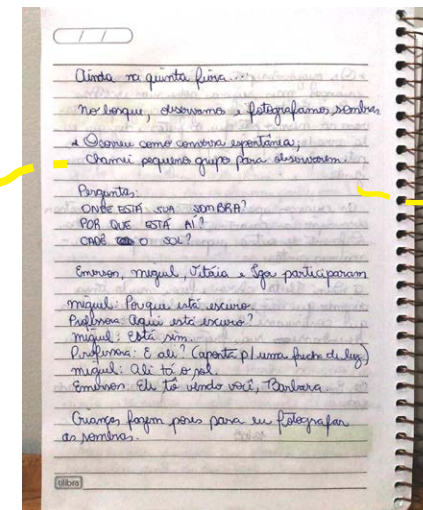 Ainda na quinta feira...
No bosque, observamos e fotografamos sombras
* Ocorreu como conversa espontânea,
chamei pequeno grupo para observarem.
Perguntas:
ONDE ESTÁ SUA SOMBRA?
POR QUE ESTÁ AÍ?
CADÊ O SOL?
Emerson, Miguel, Vitória e Igor participaram
Miguel: Porque está escuro.
Professora: Aqui está escuro?
Miguel: Está sim.
Professora: E ali? (aponta p/ uma frecha de luz)
Miguel: Ali tá o sol.
Emerson: Eu tô vendo você, Barbara.
Crianças fazem poses para eu fotografar
as sombras.
tilibra